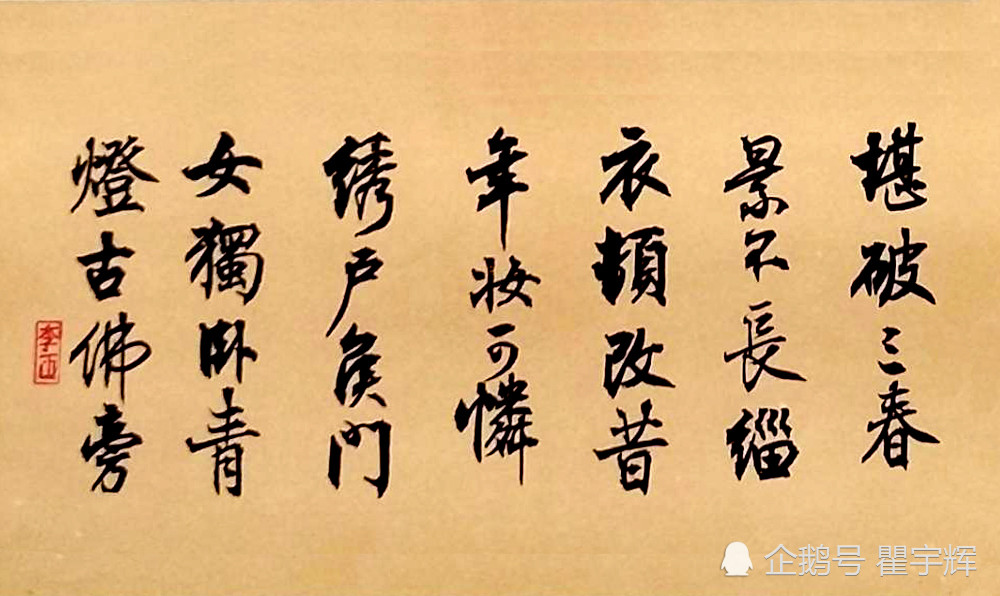 堪破三春
景不長緇
衣頓改昔
年妝可憐
绣户矦門
女獨卧青
燈古佛旁
企鹅号 瞿宇辉